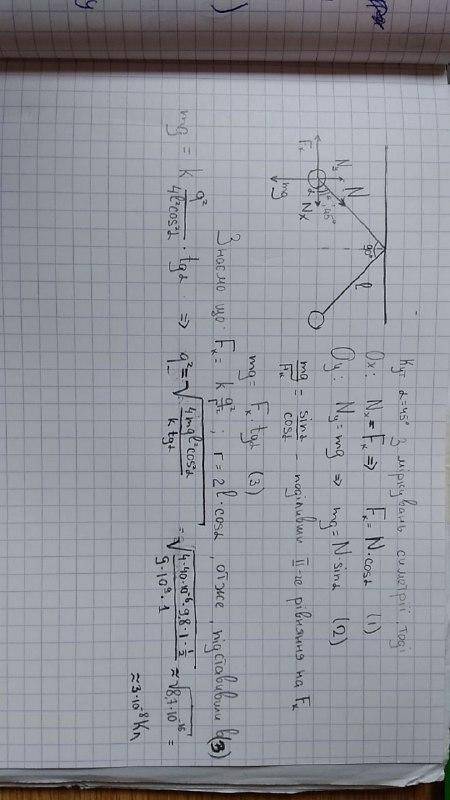 Кут α=45° з міркувань симетрії, тоді
Ox: Nx = Fк ⇒ Fк = N·cosα (1)
Oy: Ny = mg ⇒ mg = N·sinα (2)
mg/Fк = sinα/cosα – поділивши II-ге рівняння на Fк
mg = Fк tgα (3)
Знаємо що: Fк = k q²/r² ; r = 2l·cosα, отже, підставивши в (3)
mg = k q²/4l²cos²α · tgα ⇒ q² = √4mgl²cos²α/k tgα = √4·40·10⁻⁶·9,8·1·½/9·10⁹·1 ≈ √8,7·10⁻¹⁶ =
≈ 3·10⁻⁸ Кл
90°
l
N
Ny
α=45°
Fк
Nx
mg